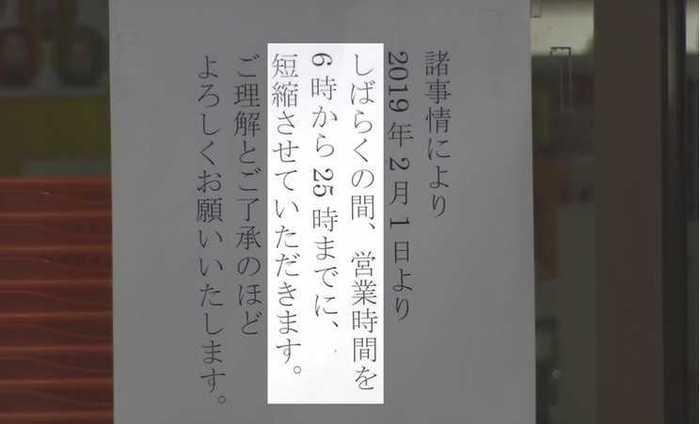 諸事情により
2019年2月1日より
しばらくの間、営業時間を
6時から25時までに、
短縮させていただきます。
ご理解とご了承のほど
よろしくお願いいたします。